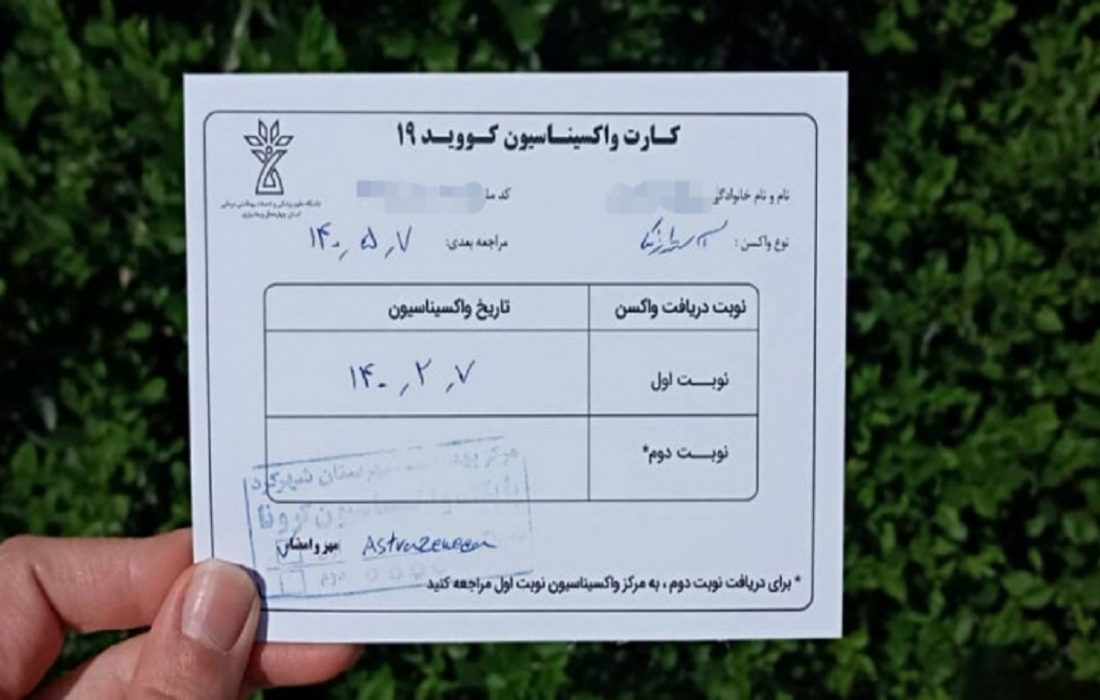 کارت واکسیناسیون کووید ۱۹
دانشگاه علوم پزشکی و خدمات بهداشتی درمانی
استان چهارمحال و بختیاری
نام و نام خانوادگی کد مل
نوع واکسن : آسترازنکا مراجعه بعدی: ۱۴۰۰,۵,۷
نوبت دریافت واکسن تاریخ واکسیناسیون
نوبت اول ۱۴۰۰,۲,۷
نوبت دوم*
مرکز شهرستان شهرکرد
واکسیناسیون کرونا
مهر و امضاء Astrazeneca
دوم
* برای دریافت نوبت دوم ، به مرکز واکسیناسیون نوبت اول مراجعه کنید